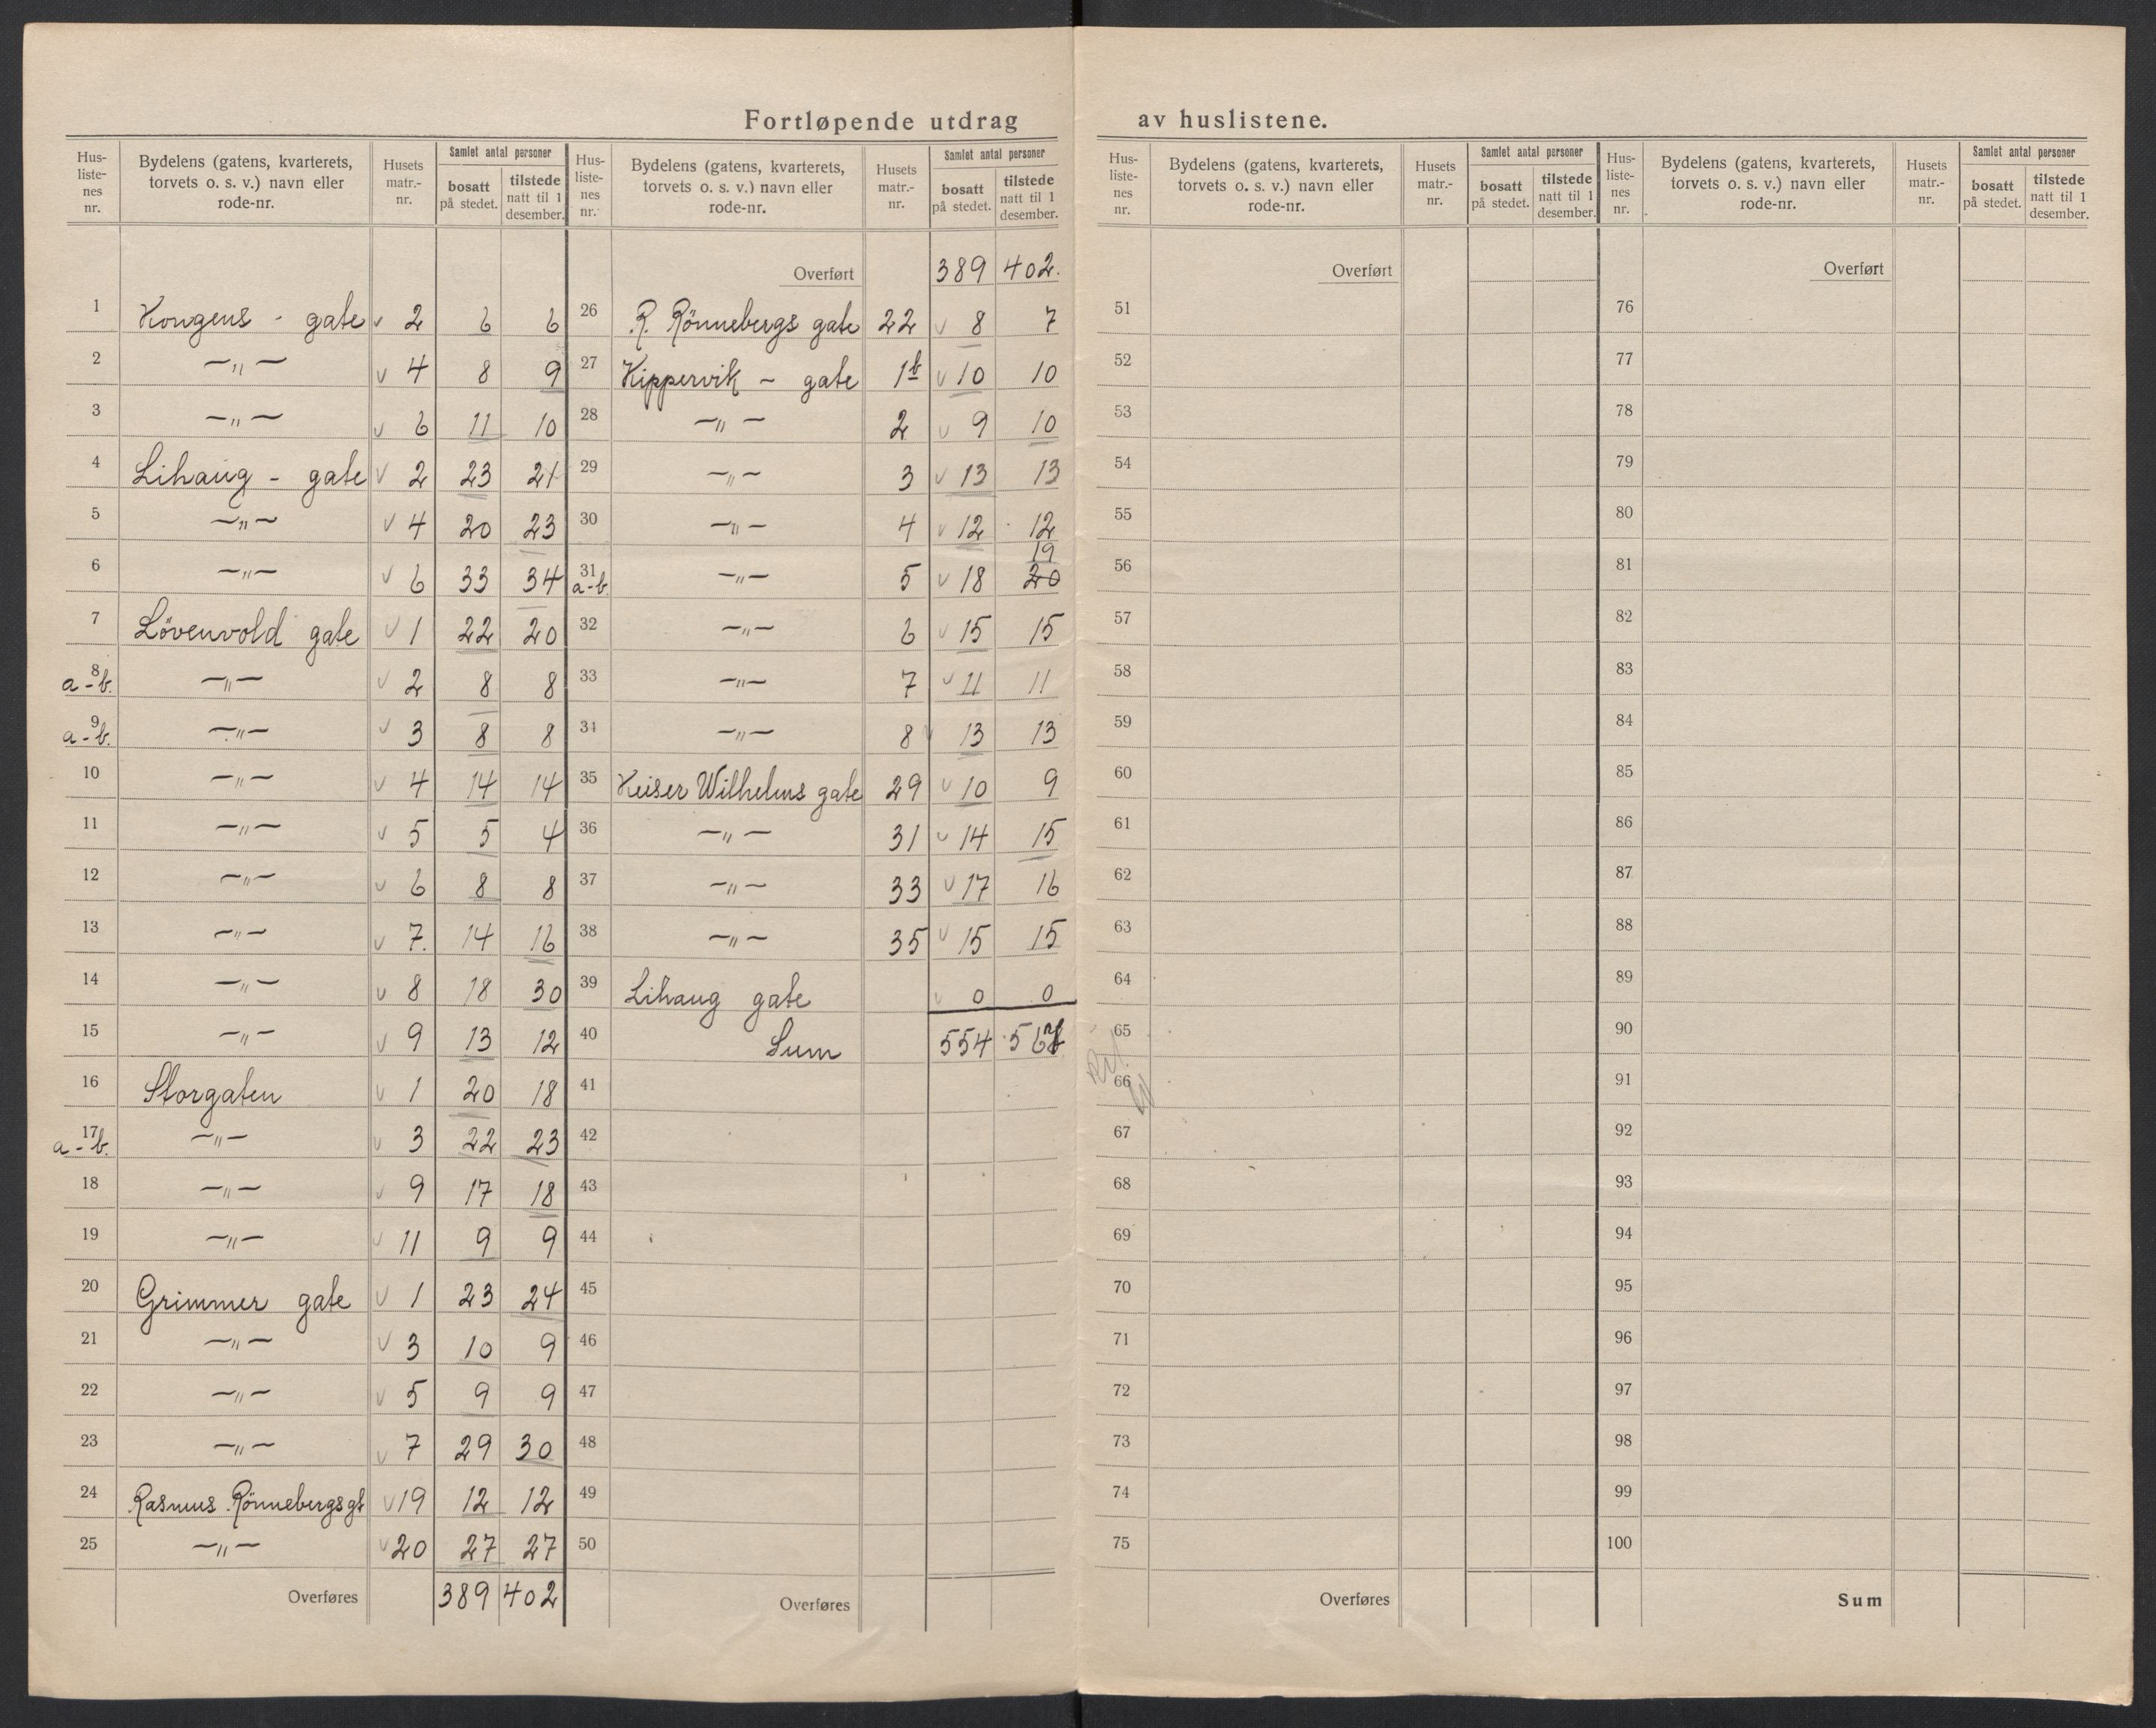 Fortløpende utdrag av huslistene.
Hus-liste-nes nr. | Bydelens (gatens, kvarterets, torvets o. s. v.) navn eller rode-nr. | Husets matr.-nr. | Samlet antal personer | bosatt på stedet. | tilstede natt til 1 desember.
1 Kongens - gate v 2 6 6
2 —„— v 4 8 9
3 —„— v 6 11 10
4 Lihaug - gate v 2 23 21
5 —„— v 4 20 23
6 —„— v 6 33 34
7 Lövenvold gate v 1 22 20
8 a-b. —„— v 2 8 8
9 a-b. —„— v 3 8 8
10 —„— v 4 14 14
11 —„— v 5 5 4
12 —„— v 6 8 8
13 —„— v 7. 14 16
14 —„— v 8 18 30
15 —„— v 9 13 12
16 Storgaten v 1 20 18
17 a-b. —„— v 3 22 23
18 —„— v 9 17 18
19 —„— v 11 9 9
20 Grimmer gate v 1 23 24
21 —„— v 3 10 9
22 —„— v 5 9 9
23 —„— v 7 29 30
24 Rasmus Rönnebergsgt v 19 12 12
25 —„— v 20 27 27
Overføres 389 402
Hus-liste-nes nr. | Bydelens (gatens, kvarterets, torvets o. s. v.) navn eller rode-nr. | Husets matr.-nr. | Samlet antal personer | bosatt på stedet. | tilstede natt til 1 desember.
Overført 389 402.
26 R. Rönnebergs gate 22 v 8 7
27 Kippervik - gate 1b v 10 10
28 —„— 2 v 9 10
29 —„— 3 v 13 13
30 —„— 4 v 12 12
31 a-b. —„— 5 v 18 20 19
32 —„— 6 v 15 15
33 —„— 7 v 11 11
34 —„— 8 v 13 13
35 Keiser Wilhelms gate 29 v 10 9
36 —„— 31 v 14 15
37 —„— 33 v 17 16
38 —„— 35 v 15 15
39 Lihaug gate v 0 0
40 Sum 554 567
41
42
43
44
45
46
47
48
49
50
Overføres
Hus-liste-nes nr. | Bydelens (gatens, kvarterets, torvets o. s. v.) navn eller rode-nr. | Husets matr.-nr. | Samlet antal personer | bosatt på stedet. | tilstede natt til 1 desember.
Overført
51
52
53
54
55
56
57
58
59
60
61
62
63
64
65
66
67
68
69
70
71
72
73
74
75
Overføres
Hus-liste-nes nr. | Bydelens (gatens, kvarterets, torvets o. s. v.) navn eller rode-nr. | Husets matr.-nr. | Samlet antal personer | bosatt på stedet. | tilstede natt til 1 desember.
Overført
76
77
78
79
80
81
82
83
84
85
86
87
88
89
90
91
92
93
94
95
96
97
98
99
100
Sum